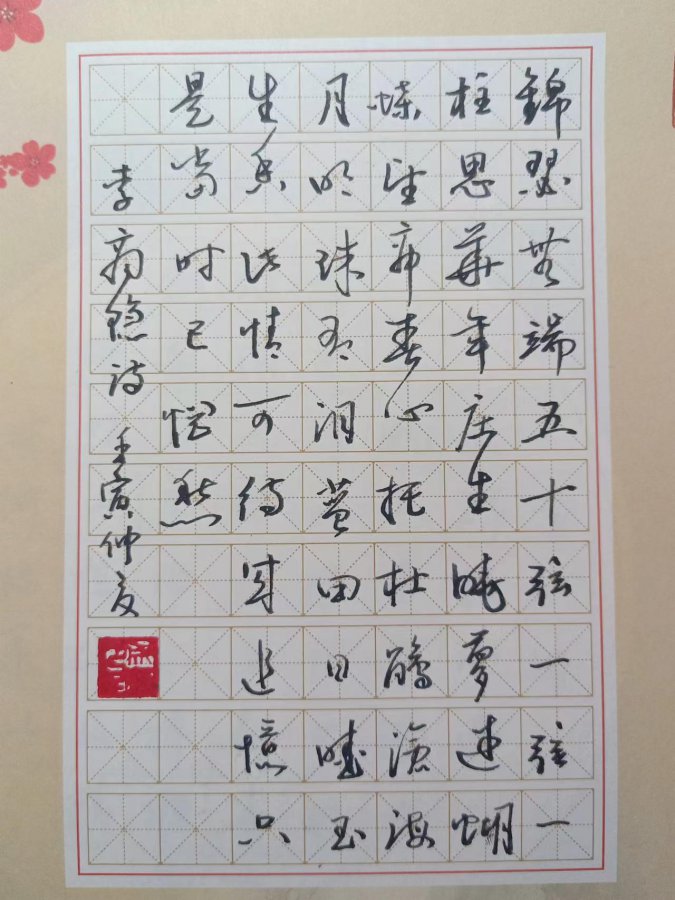 錦瑟無端五十弦一弦一
柱思華年庄生曉夢迷蝴
蝶望帝春心托杜鵑滄海
月明珠有淚藍田日暖玉
生煙此情可待成追憶只
是當时已惘然
李商隐诗 壬寅仲夏